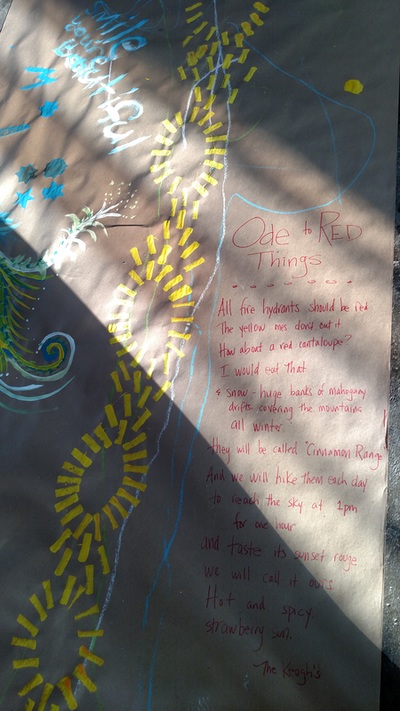 Ode to RED
Things
All fire hydrants should be red
The yellow ones don't cut it
How about a red cantaloupe?
I would eat that
& snow - huge banks of mahogany
drifts covering the mountains
all winter
they will be called "Cinnamon Range"
And we will hike them each day
to reach the sky at 1pm
for one hour
and taste its sunset rouge
we will call it ours.
Hot and spicy
strawberry sun.
-The Keagh's